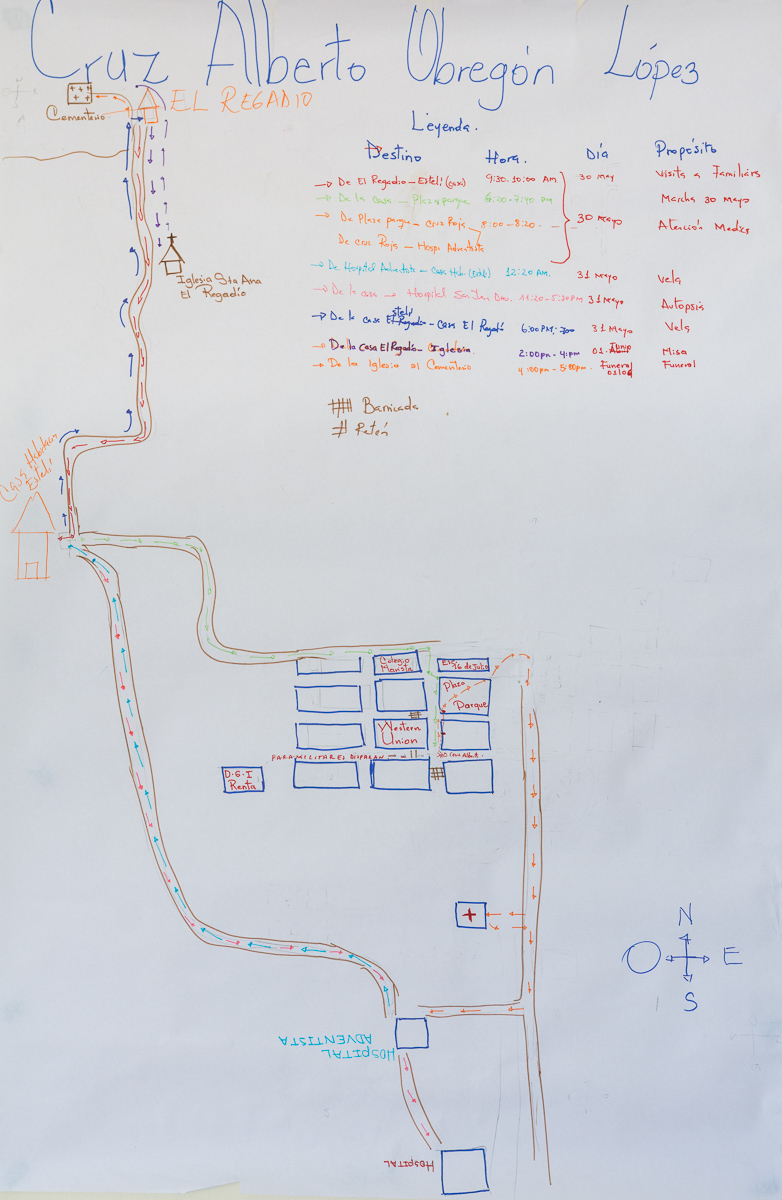 Cruz Alberto Obregón López
EL REGADIO
Cementerio
Leyenda.
Destino Hora. Día Propósito
→ De El Regadio - Estelí (casa) 9:30-10:00 AM. 30 May Visita a Familiars
→ De la casa - Plaza parque 6:00-7:40 PM Marcha 30 Mayo
→ De Plaza parque - Cruz Roja 8:00-8:20 30 Mayo Atención Medica
De cruz Roja - Hospi Adventista
→ De Hospital Adventista - Casa Hab. (Estelí) 12:20 AM. 31 Mayo Vela
→ De la casa → Hospital San Juan Dios. 11:20-5:30PM 31 Mayo Autopsia
Estelí
→ De la casa - Casa El Regadío 6:00 PM, 31 Mayo Vela
→ De la casa El Regadío - Iglesia 2:00pm - 4:pm 01. Junio Misa
→ De la Iglesia al Cementerio 4:00pm - 5:00pm. Funeral Funeral
Iglesia Sta Ana
El Regadío
Barricada
Retén
Casa
Estelí
Colegio
Marista
Esc.
16 de Julio
Plaza
Parque
Western
Union
PARAMILITARES DISPARAN
D.G.I
Renta
N
O E
S
HOSPITAL
ADVENTISTA
HOSPITAL